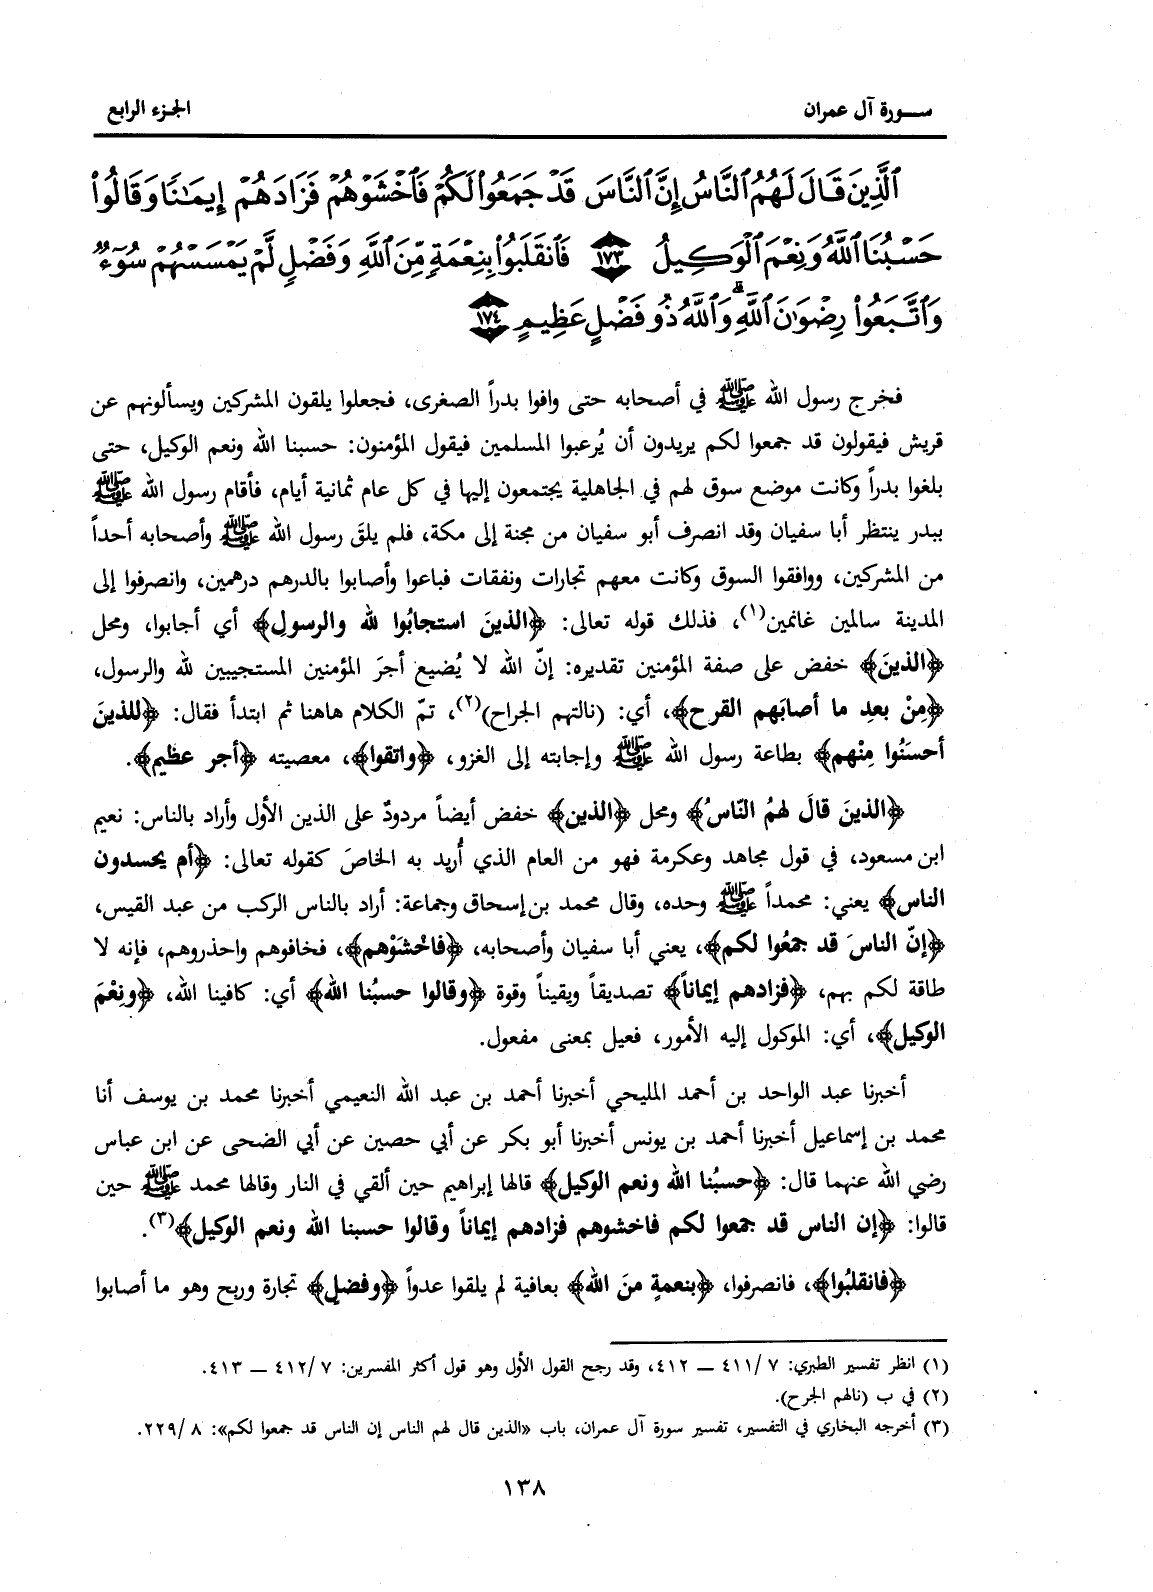 سورة آل عمران
الجزء الرابع
ٱلَّذِينَ قَالَ لَهُمُ ٱلنَّاسُ إِنَّ ٱلنَّاسَ قَدۡ جَمَعُواْ لَكُمۡ فَٱخۡشَوۡهُمۡ فَزَادَهُمۡ إِيمَٰنٗا وَقَالُواْ
حَسۡبُنَا ٱللَّهُ وَنِعۡمَ ٱلۡوَكِيلُ ١٧٣ فَٱنقَلَبُواْ بِنِعۡمَةٖ مِّنَ ٱللَّهِ وَفَضۡلٖ لَّمۡ يَمۡسَسۡهُمۡ سُوٓءٞ
وَٱتَّبَعُواْ رِضۡوَٰنَ ٱللَّهِۗ وَٱللَّهُ ذُو فَضۡلٍ عَظِيمٍ ١٧٤
فخرج رسول الله ﷺ في أصحابه حتى وافوا بدراً الصغرى، فجعلوا يلقون المشركين ويسألونهم عن
قريش فيقولون قد جمعوا لكم يريدون أن يُرعبوا المسلمين فيقول المؤمنون: حسبنا الله ونعم الوكيل، حتى
بلغوا بدراً وكانت موضع سوق لهم في الجاهلية يجتمعون إليها في كل عام ثمانية أيام، فأقام رسول الله ﷺ
ببدر ينتظر أبا سفيان وقد انصرف أبو سفيان من مجنة إلى مكة، فلم يلقَ رسول الله ﷺ وأصحابه أحداً
من المشركين، ووافقوا السوق وكانت معهم تجارات ونفقات فباعوا وأصابوا بالدرهم درهمين، وانصرفوا إلى
المدينة سالمين غانمين(١)، فذلك قوله تعالى: ﴿الذينَ استجابُوا لله والرسولِ﴾ أي أجابوا، ومحل
﴿الذينَ﴾ خفض على صفة المؤمنين تقديره: إنّ الله لا يُضيع أجرَ المؤمنين المستجيبين لله والرسول،
﴿مِنْ بعدِ ما أصابَهم القرح﴾، أي: (نالتهم الجراح)(٢)، تمّ الكلام هاهنا ثم ابتدأ فقال: ﴿للذينَ
أحسَنُوا مِنْهم﴾ بطاعة رسول الله ﷺ وإجابته إلى الغزو، ﴿واتقوا﴾، معصيته ﴿أجر عظيم﴾.
﴿الذينَ قالَ لهمُ النّاسُ﴾ ومحل ﴿الذين﴾ خفض أيضاً مردودٌ على الذين الأول وأراد بالناس: نعيم
ابن مسعود، في قول مجاهد وعكرمة فهو من العام الذي أُريد به الخاصَ كقوله تعالى: ﴿أم يحسدون
الناس﴾ يعني: محمداً ﷺ وحده، وقال محمد بن إسحاق وجماعة: أراد بالناس الركب من عبد القيس،
﴿إنّ الناسَ قد جمعُوا لكم﴾، يعني أبا سفيان وأصحابه، ﴿فاخْشَوْهم﴾، فخافوهم واحذروهم، فإنه لا
طاقة لكم بهم، ﴿فزادهم إيماناً﴾ تصديقاً ويقيناً وقوة ﴿وقالوا حسبُنا الله﴾ أي: كافينا الله، ﴿ونِعْمَ
الوكيل﴾، أي: الموكول إليه الأمور، فعيل بمعنى مفعول.
أخبرنا عبد الواحد بن أحمد المليحي أخبرنا أحمد بن عبد الله النعيمي أخبرنا محمد بن يوسف أنا
محمد بن إسماعيل أخبرنا أحمد بن يونس أخبرنا أبو بكر عن أبي حصين عن أبي الضحى عن ابن عباس
رضي الله عنهما قال: ﴿حسبُنا الله ونعم الوكيل﴾ قالها إبراهيم حين ألقي في النار وقالها محمد ﷺ حين
قالوا: ﴿إن الناس قد جمعوا لكم فاخشوهم فزادهم إيماناً وقالوا حسبنا الله ونعم الوكيل﴾(٣).
﴿فانقلبُوا﴾، فانصرفوا، ﴿بنعمةٍ منَ الله﴾ بعافية لم يلقوا عدواً ﴿وفضلٍ﴾ تجارة وربح وهو ما أصابوا
(١) انظر تفسير الطبري: ٧ /٤١١ ــ ٤١٢، وقد رجح القول الأول وهو قول أكثر المفسرين: ٧ /٤١٢ ــ ٤١٣.
(٢) في ب (نالهم الجرح).
(٣) أخرجه البخاري في التفسير، تفسير سورة آل عمران، باب «الذين قال لهم الناس إن الناس قد جمعوا لكم»: ٨ /٢٢٩.
١٣٨